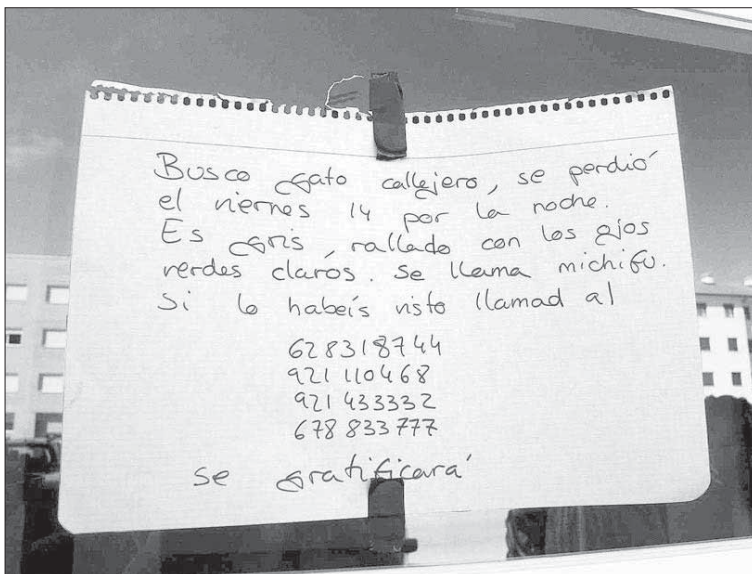 Busco gato callejero, se perdió
el viernes 14 por la noche.
Es gris, rallado con los ojos
verdes claros. Se llama michifu.
Si lo habeís visto llamad al
628318744
921 110468
921 433332
678 833777
se gratificará